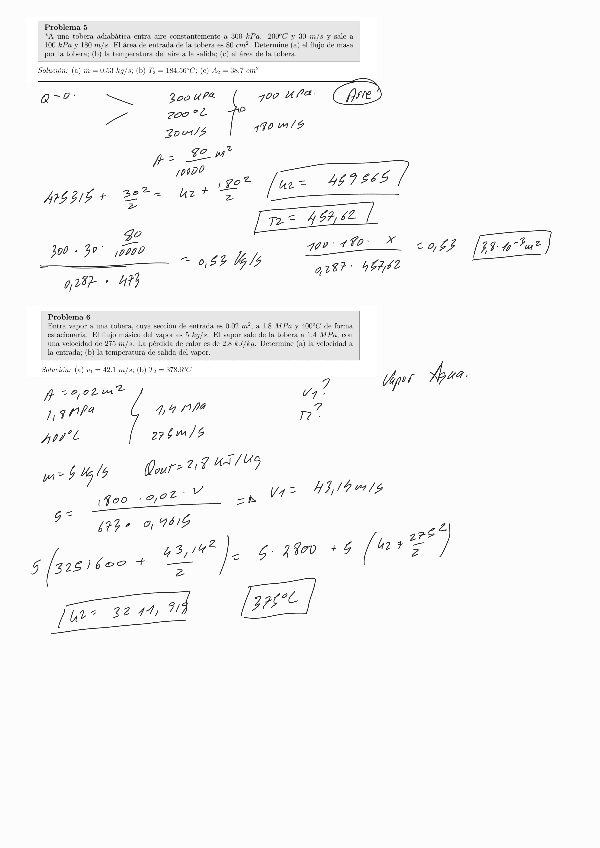 Problema 5
"A una tobera adiabática entra aire constantemente a 300 kPa, 200°C y 30 m/s y sale a
100 kPa y 180 m/s. El área de entrada de la tobera es 80 cm². Determine (a) el flujo de masa
por la tobera; (b) la temperatura del aire a la salida; (c) el área de la tobera.
Solución: (a) m = 0.53 kg/s; (b) T₂ = 184.56°C; (c) A₂ = 38.7 cm²
Q=0. 300 kPa 100 kPa. Aire
200°C
30 m/s 180 m/s
A = 80/10000 m²
475315 + 30²/2 = h2 + 180²/2 h2 = 459565
T2 = 457,62
300 · 30 · 80/10000 / 0,287 · 473 = 0,53 kg/s 100 · 180 · x / 0,287 · 457,62 = 0,53 3,8·10⁻³m²
Problema 6
Entra vapor a una tobera, cuya sección de entrada es 0.02 m², a 1.8 MPa y 400°C de forma
estacionaria. El flujo másico del vapor es 5 kg/s. El vapor sale de la tobera a 1.4 MPa, con
una velocidad de 275 m/s. La pérdida de calor es de 2.8 kJ/kg. Determine (a) la velocidad a
la entrada; (b) la temperatura de salida del vapor.
Solución: (a) v₁ = 42.1 m/s; (b) T₂ = 378.6°C
A = 0,02 m² V1? Vapor Agua.
1,8 MPa 1,4 MPa T2?
400°C 275 m/s
m = 5 kg/s Qout = 2,8 kJ/kg
5 = 1800 · 0,02 · V / 673 · 0,4615 => V1 = 43,14 m/s
5 (3251600 + 43,14²/2) = 5 · 2800 + 5 (h2 + 275²/2)
h2 = 3211,918 375°C